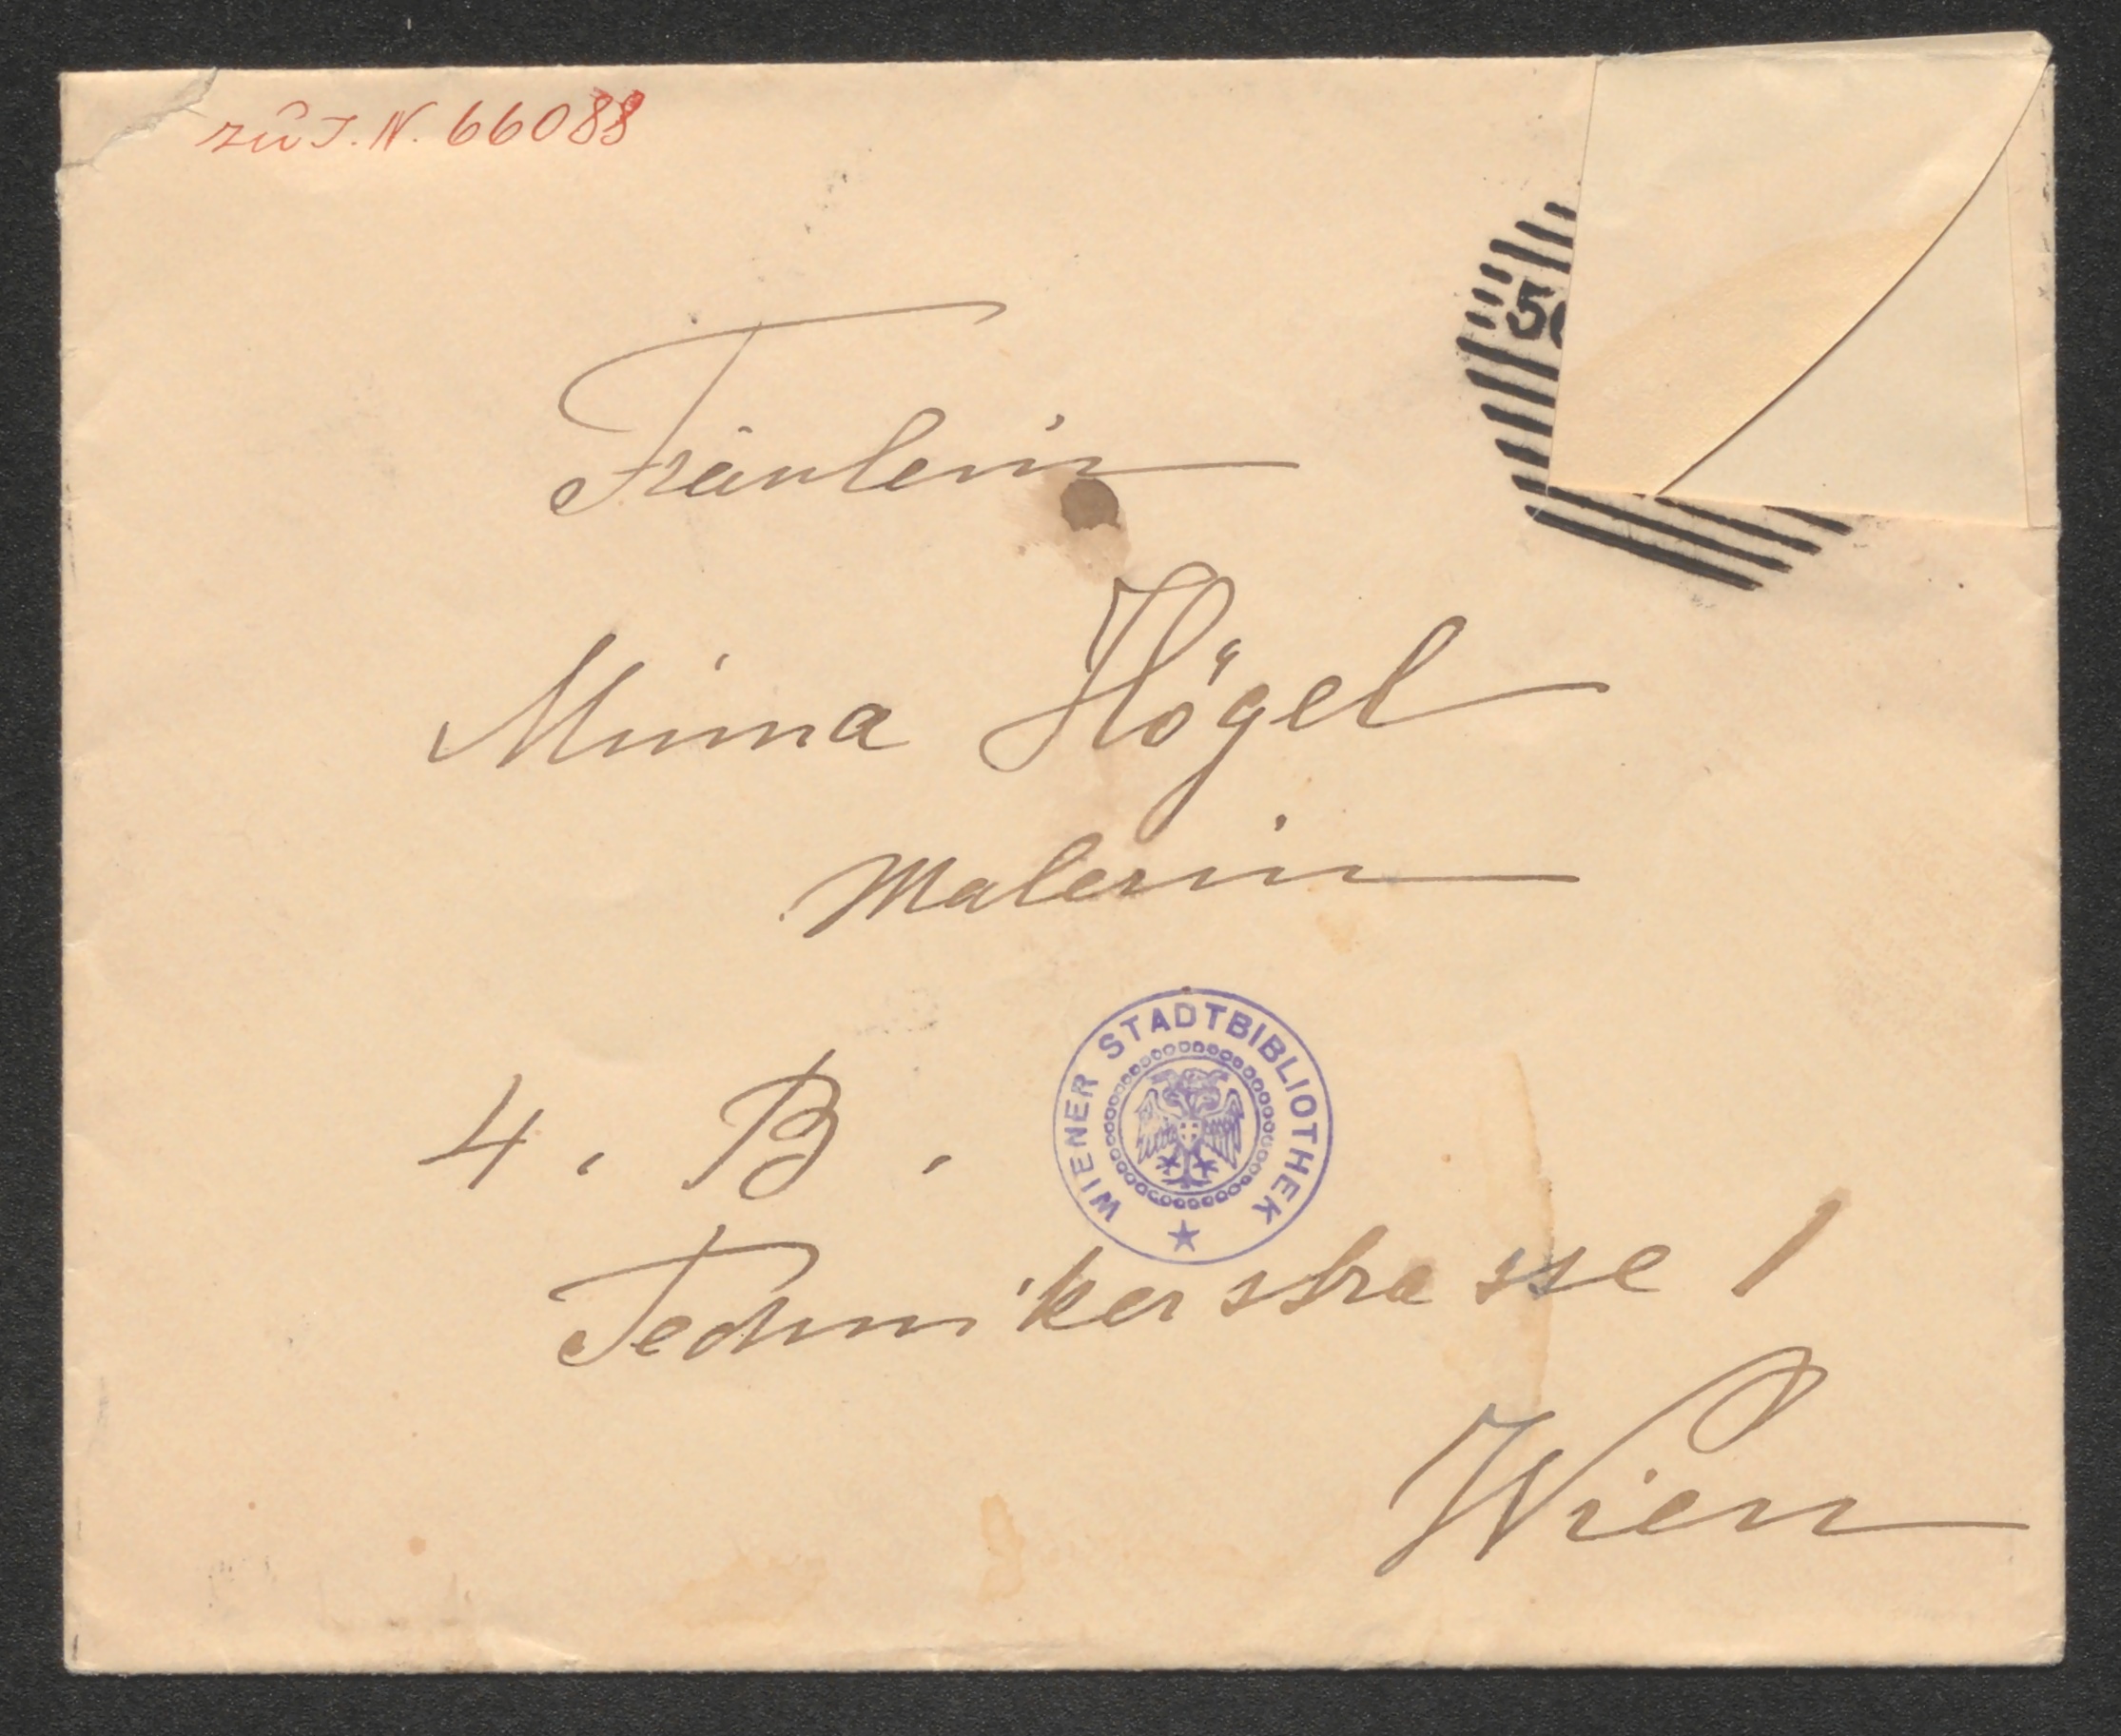 zu I. N. 66088
5
Fräulein
Minna Högel
Malerin
WIENER STADTBIBLIOTHEK
4. B.
Technikerstrasse 1
Wien